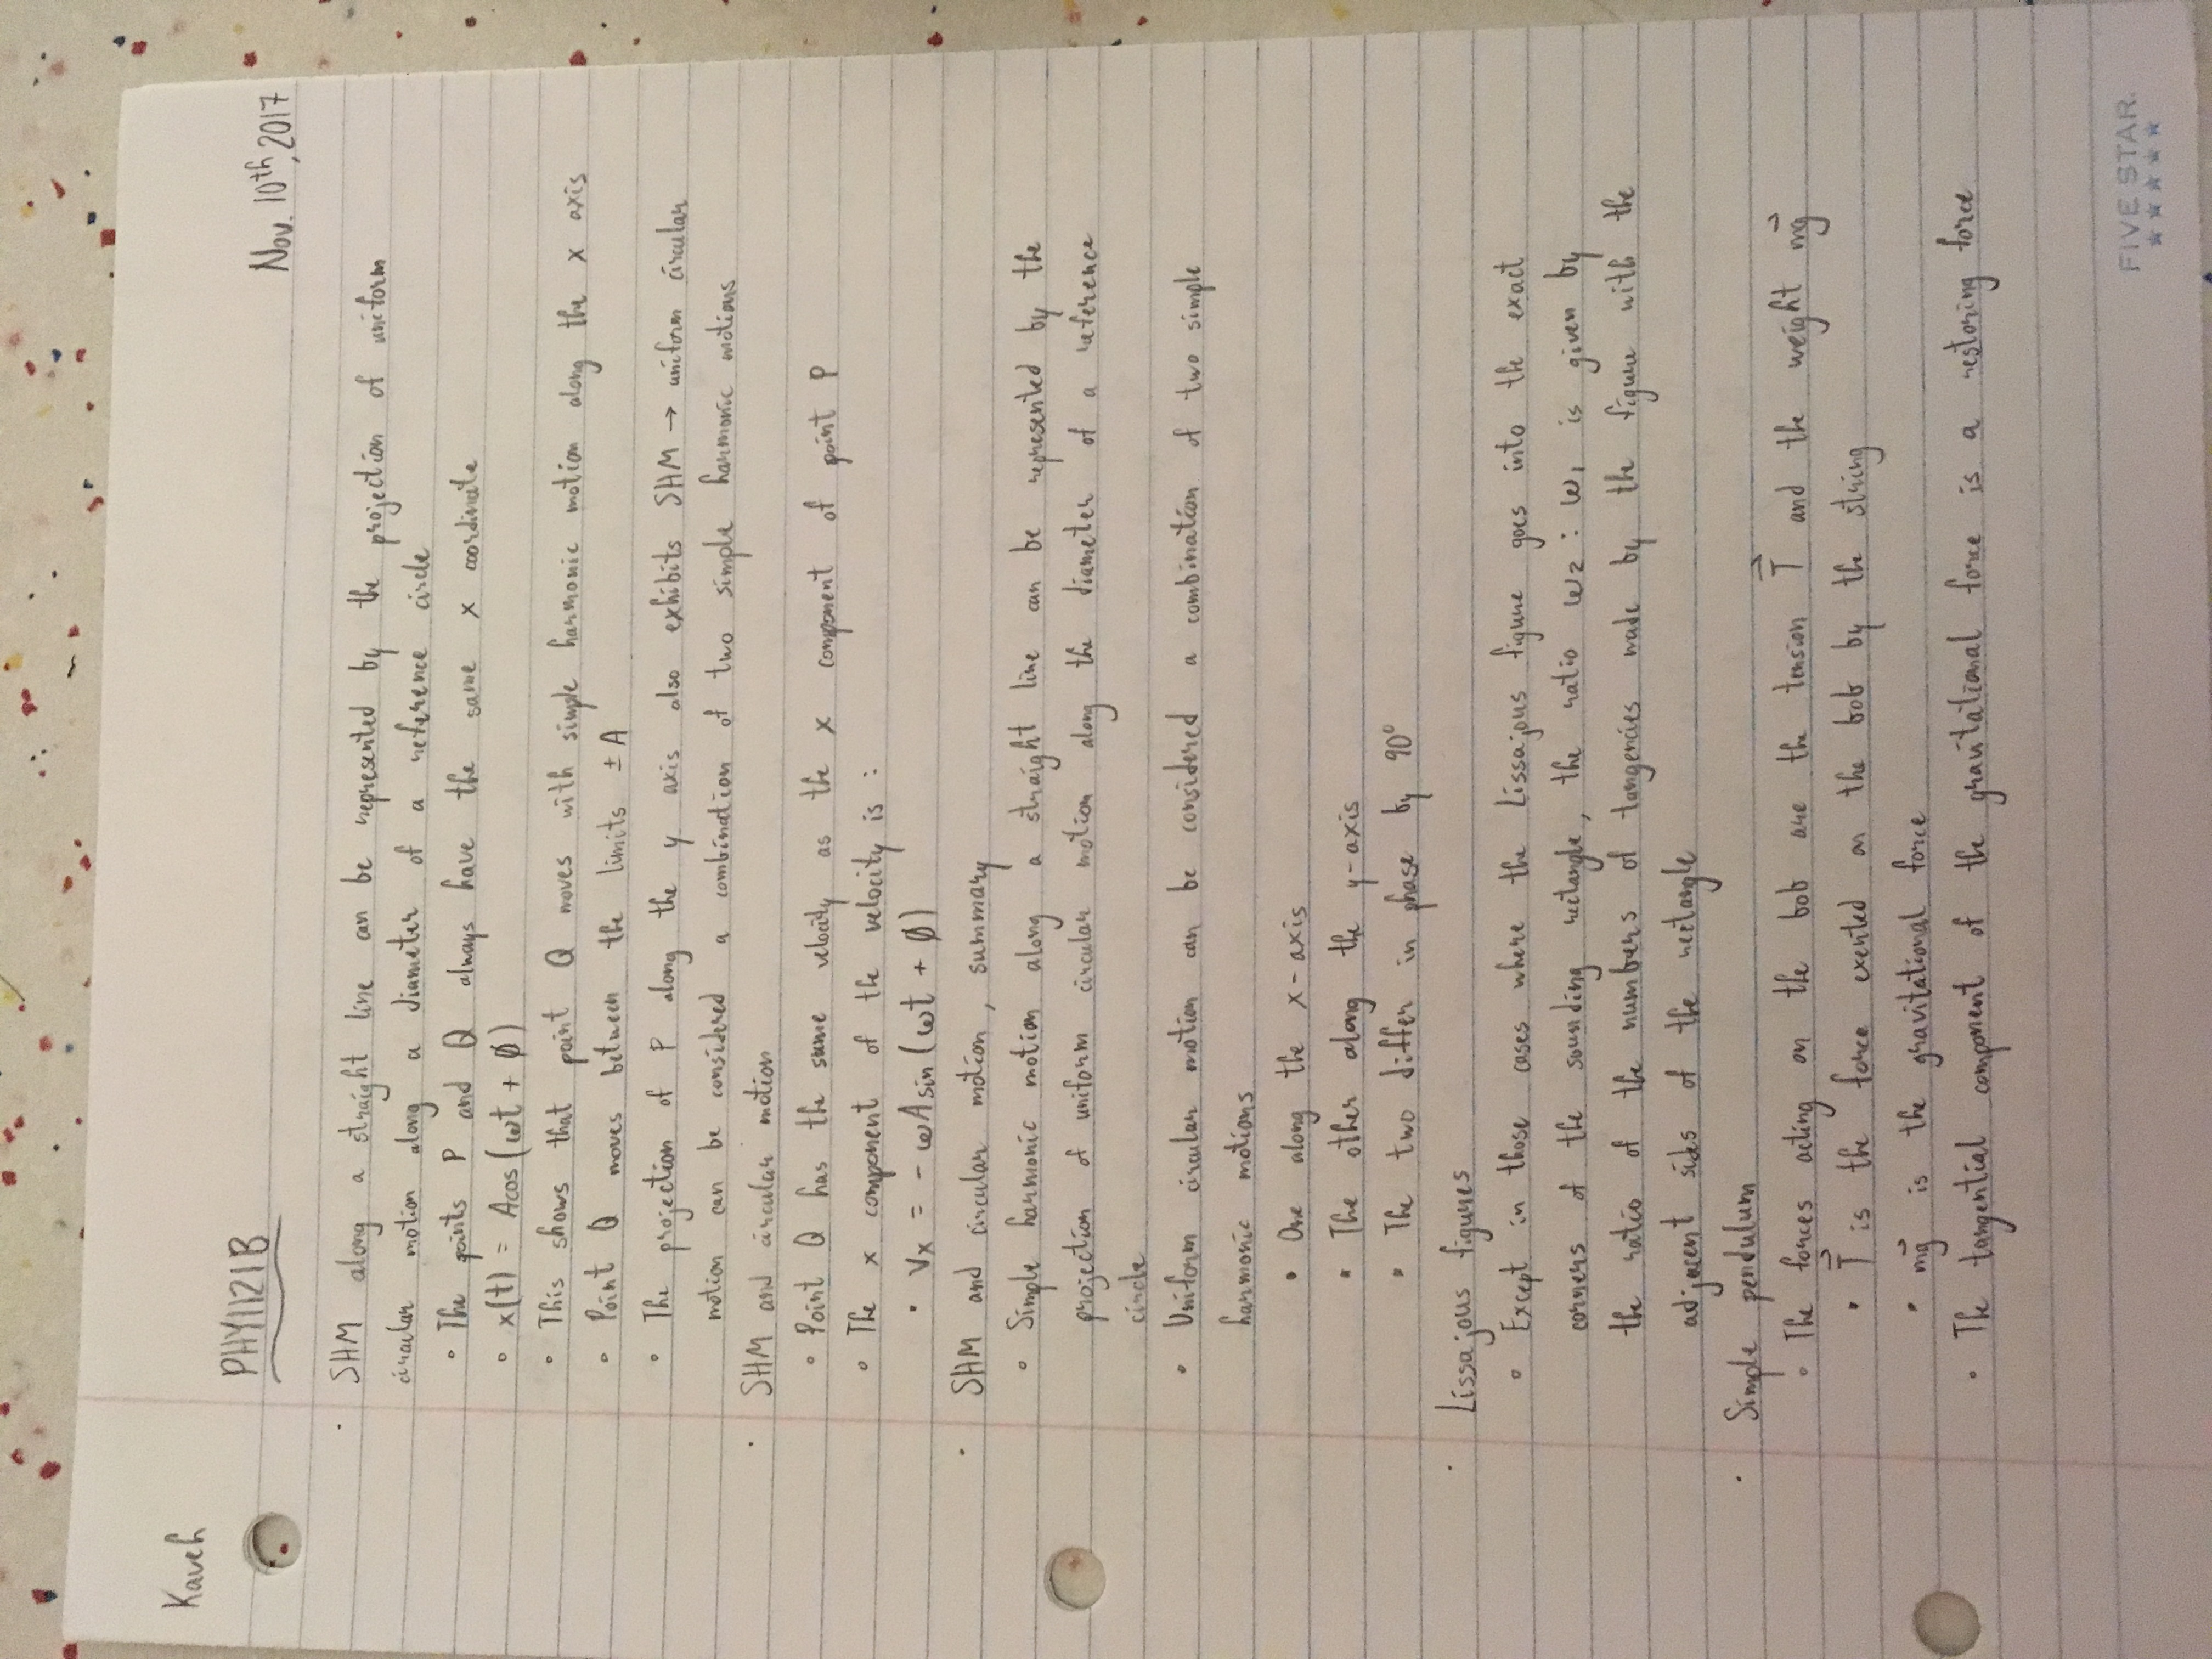 Kaveh
PHY1121B
Nov. 10th, 2017
· SHM along a straight line can be represented by the projection of uniform
circular motion along a diameter of a reference circle
∘ The points P and Q always have the same x coordinate
∘ x(t) = Acos(ωt + ø)
∘ This shows that point Q moves with simple harmonic motion along the x axis
∘ Point Q moves between the limits ± A
∘ The projection of P along the y axis also exhibits SHM → uniform circular
motion can be considered a combination of two simple harmonic motions
· SHM and circular motion
∘ Point Q has the same velocity as the x component of point P
∘ The x component of the velocity is :
▪ Vx = - ωAsin(ωt + ø)
· SHM and circular motion, summary
∘ Simple harmonic motion along a straight line can be represented by the
projection of uniform circular motion along the diameter of a reference
circle
∘ Uniform circular motion can be considered a combination of two simple
harmonic motions
▪ One along the x-axis
▪ The other along the y-axis
▪ The two differ in phase by 90°
· Lissajous figures
∘ Except in those cases where the Lissajous figure goes into the exact
corners of the sounding rectangle, the ratio ω2 : ω1 is given by
the ratio of the numbers of tangencies made by the figure with the
adjacent sides of the rectangle
· Simple pendulum
∘ The forces acting on the bob are the tension T⃗ and the weight mg⃗
▪ T⃗ is the force exerted on the bob by the string
▪ mg⃗ is the gravitational force
∘ The tangential component of the gravitational force is a restoring force
FIVE STAR.
★ ★ ★ ★ ★